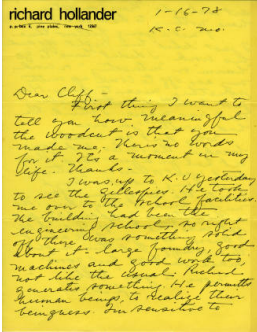 richard hollander
1-16-78
K.C. Mo.
Dear Cliff -
First thing I want to
tell you how meaningful
the woodcut is that you
made me. There's no words
for it. It's a moment in my
life. Thanks.
I was up to K.U yesterday
to see the Gillespies. He took
me over to the school facilities.
The building had been the
engineering school, so right
off there was something solid
about it - large foundry, good
machines and good work too,
not like the usual. Richard
generates something. He permitts
human beings, to realize their
beingness. Im sensitive to